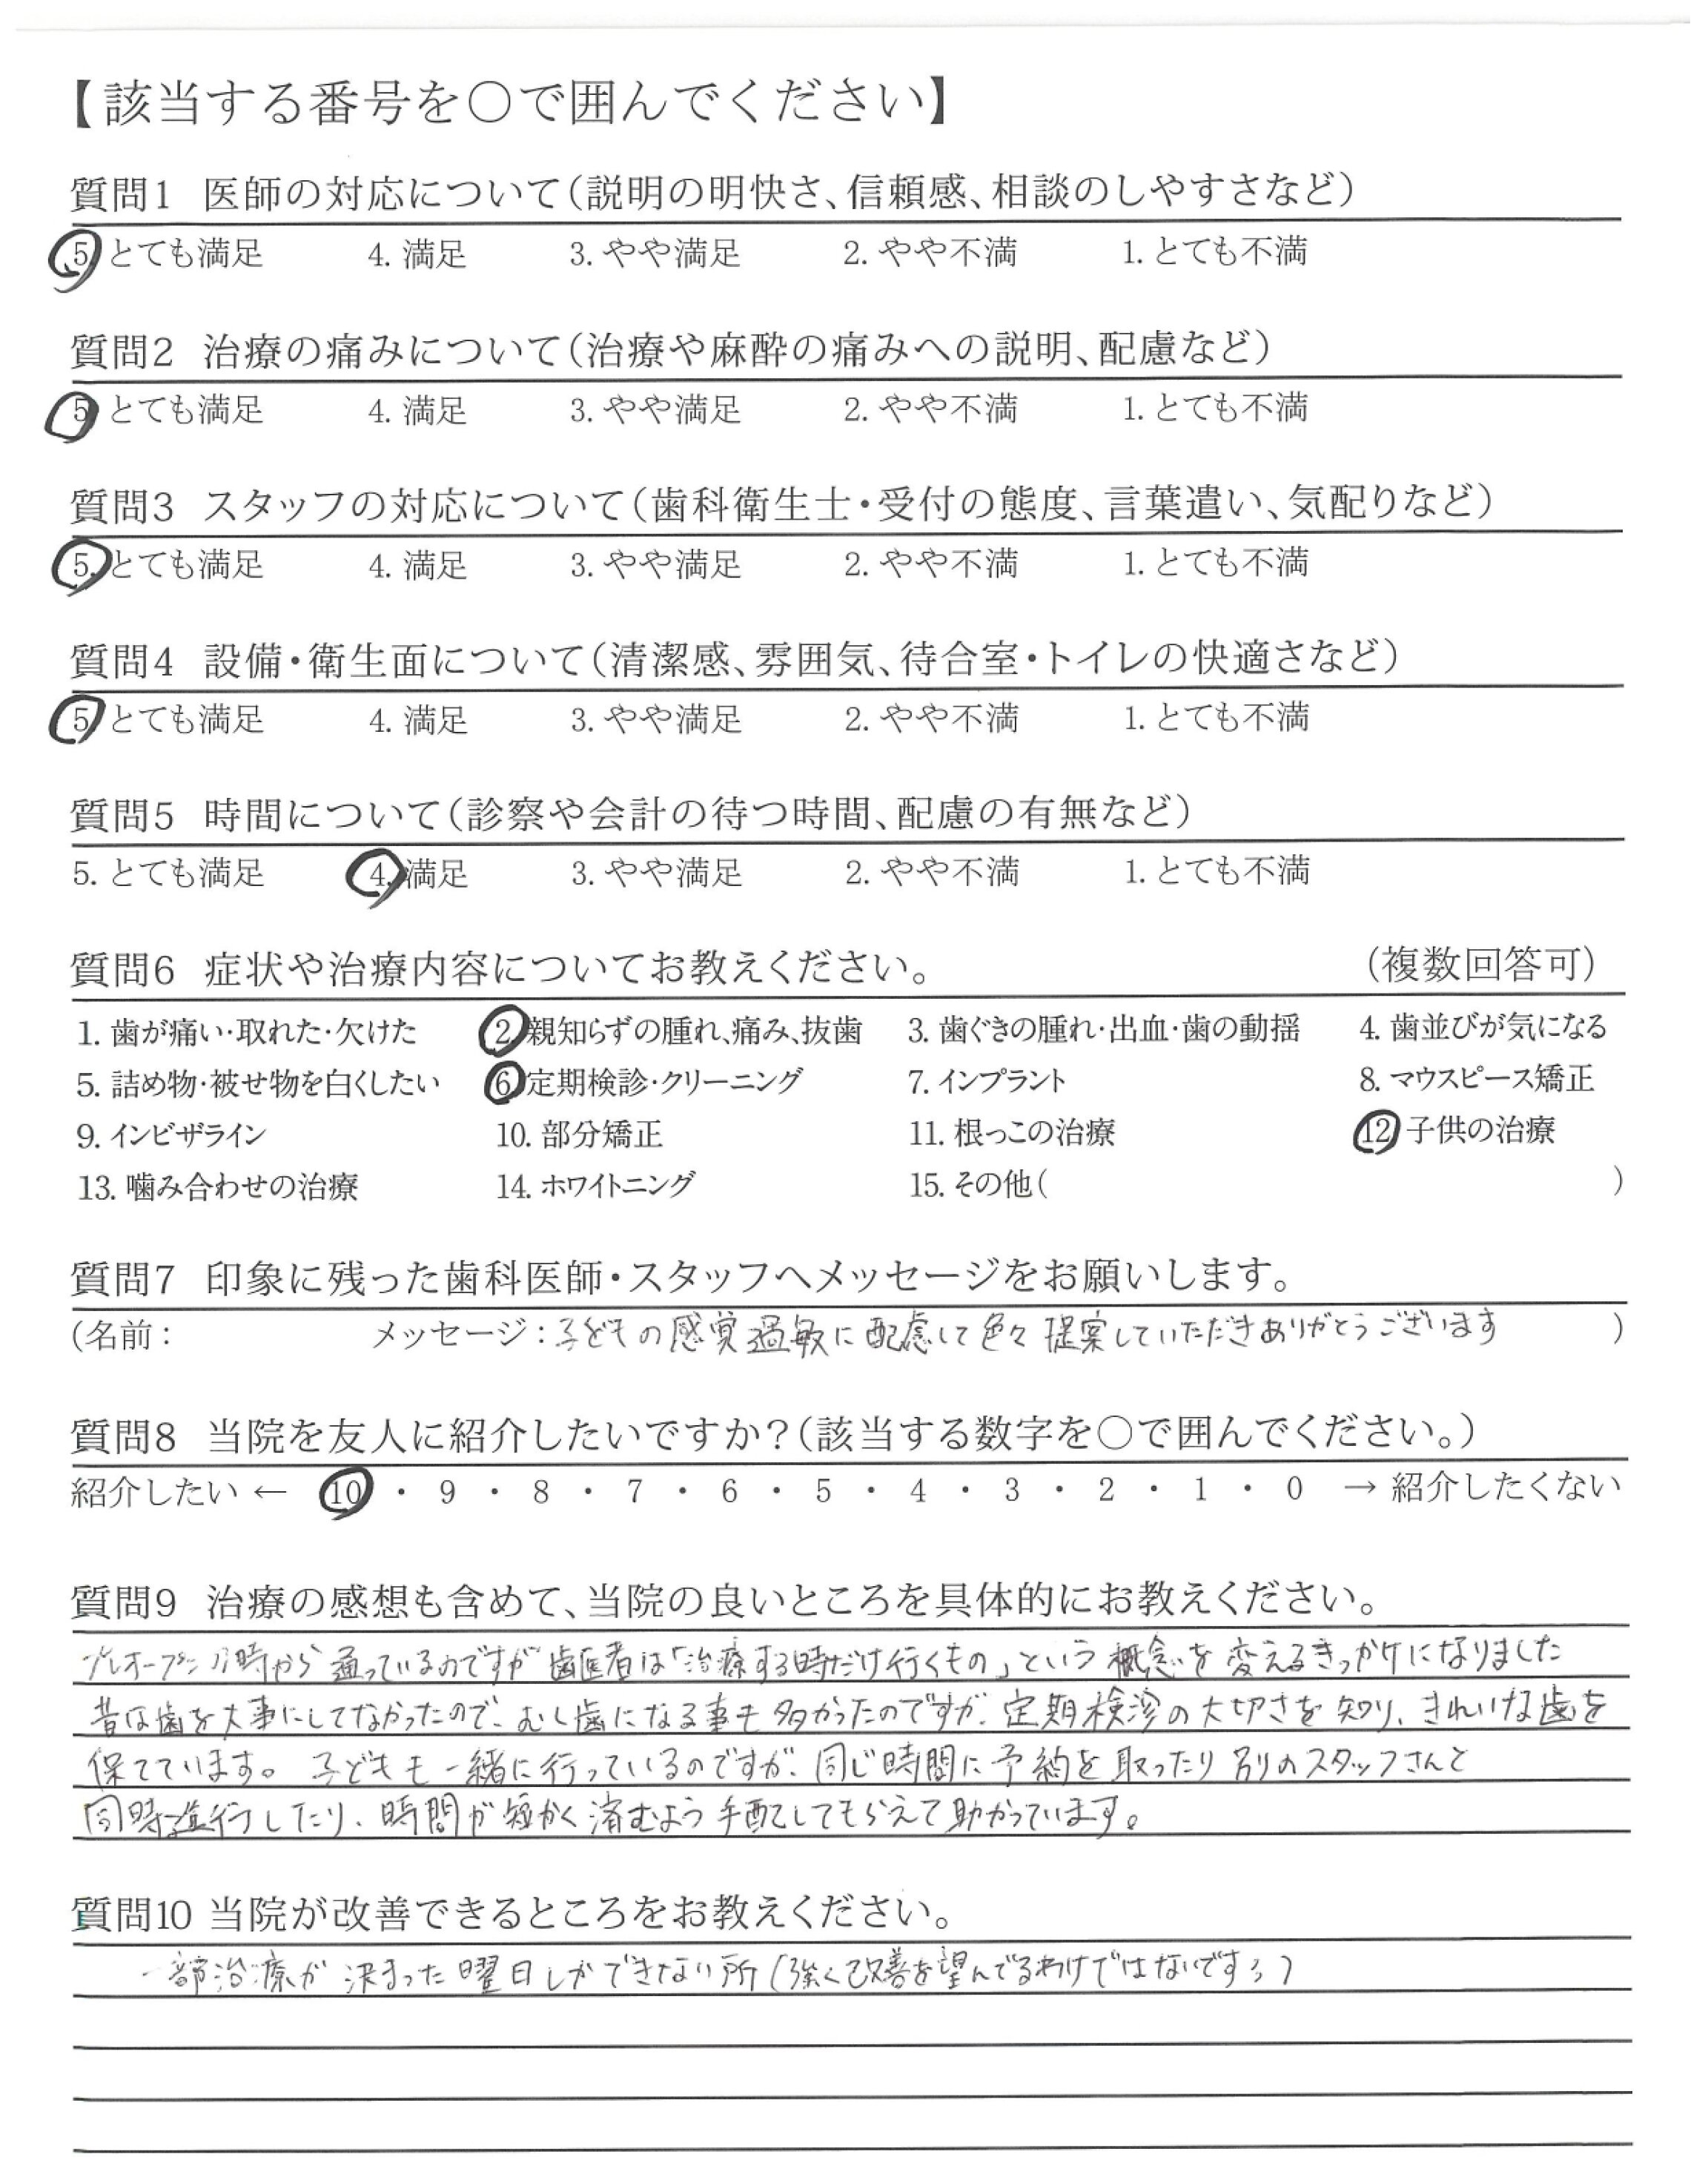 【該当する番号を○で囲んでください】
質問1 医師の対応について(説明の明快さ、信頼感、相談のしやすさなど)
5. とても満足 4. 満足 3. やや満足 2. やや不満 1. とても不満
質問2 治療の痛みについて(治療や麻酔の痛みへの説明、配慮など)
5. とても満足 4. 満足 3. やや満足 2. やや不満 1. とても不満
質問3 スタッフの対応について(歯科衛生士・受付の態度、言葉遣い、気配りなど)
5. とても満足 4. 満足 3. やや満足 2. やや不満 1. とても不満
質問4 設備・衛生面について(清潔感、雰囲気、待合室・トイレの快適さなど)
5. とても満足 4. 満足 3. やや満足 2. やや不満 1. とても不満
質問5 時間について(診察や会計の待つ時間、配慮の有無など)
5. とても満足 4. 満足 3. やや満足 2. やや不満 1. とても不満
質問6 症状や治療内容についてお教えください。 (複数回答可)
1. 歯が痛い・取れた・欠けた 2. 親知らずの腫れ、痛み、抜歯 3. 歯ぐきの腫れ・出血・歯の動揺 4. 歯並びが気になる
5. 詰め物・被せ物を白くしたい 6. 定期検診・クリーニング 7. インプラント 8. マウスピース矯正
9. インビザライン 10. 部分矯正 11. 根っこの治療 12. 子供の治療
13. 噛み合わせの治療 14. ホワイトニング 15. その他( )
質問7 印象に残った歯科医師・スタッフへメッセージをお願いします。
(名前: メッセージ:子どもの感覚過敏に配慮して色々提案していただきありがとうございます )
質問8 当院を友人に紹介したいですか?(該当する数字を○で囲んでください。)
紹介したい ← 10 ・ 9 ・ 8 ・ 7 ・ 6 ・ 5 ・ 4 ・ 3 ・ 2 ・ 1 ・ 0 → 紹介したくない
質問9 治療の感想も含めて、当院の良いところを具体的にお教えください。
プレオープンの時から通っているのですが歯医者は「治療する時だけ行くもの」という概念を変えるきっかけになりました
昔は歯を大事にしてなかったので、むし歯になる事も多かったのですが、定期検診の大切さを知り、きれいな歯を
保てています。子どもも一緒に行っているのですが、同じ時間に予約を取ったり別のスタッフさんと
同時進行したり、時間が短かく済むよう手配してもらえて助かっています。
質問10 当院が改善できるところをお教えください。
一部治療が決まった曜日しかできない所(強く改善を望んでるわけではないです)